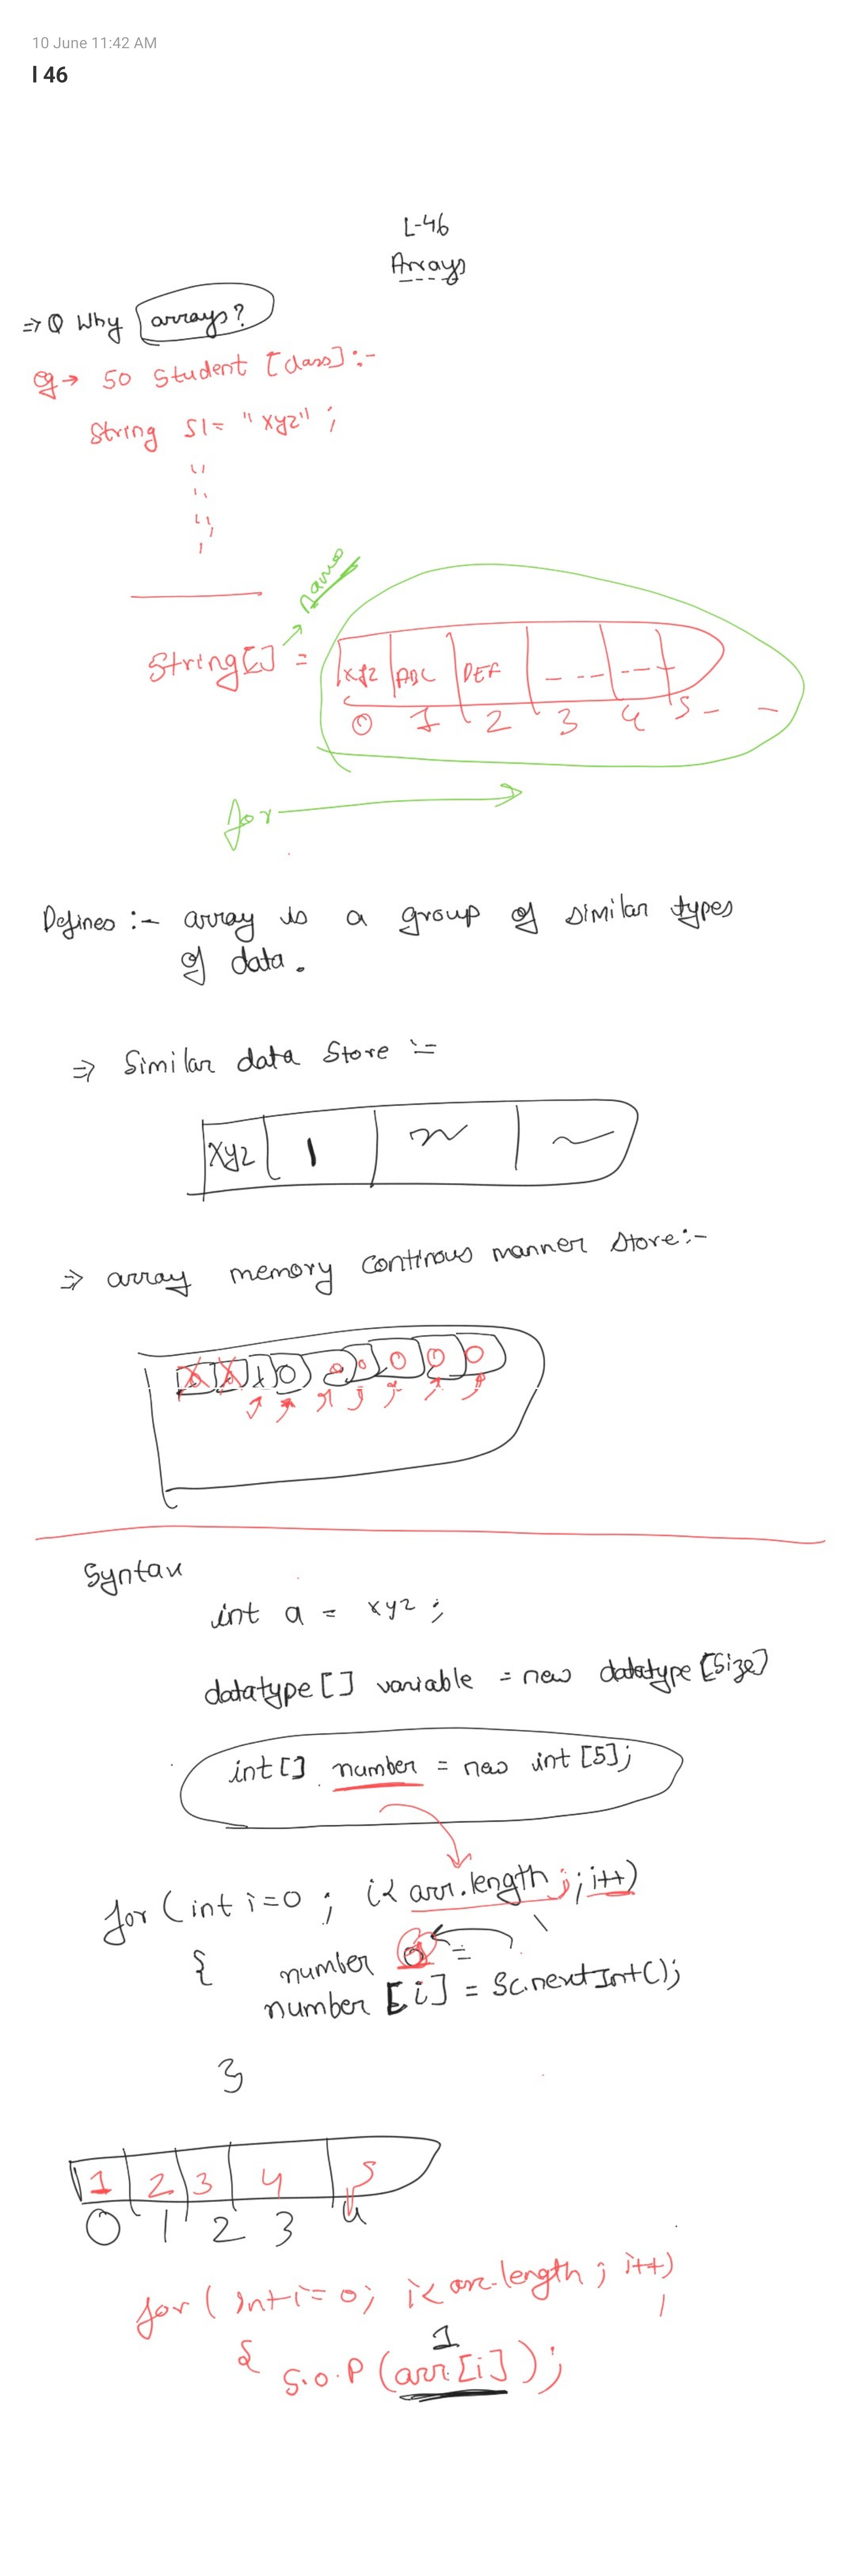 10 June 11:42 AM
l 46
L-46
Arrays
⇒ Q Why arrays?
eg → 50 Student [class]:-
String S1= "xyz" ;
names
String[] = xyz ABC DEF
0 1 2 3 4 5 - -
for
Defines :- array is a group of similar types
of data.
⇒ Similar data Store :-
xyz 1
⇒ array memory continous manner store:-
Syntax
int a = xyz ;
datatype[] variable = new datatype[size]
int[] number = new int[5];
for (int i=0 ; i< arr.length ; i++)
{ number 0 =
number [i] = Sc.nextInt();
}
1 2 3 4 5
0 1 2 3 4
for ( int i= 0; i< arr.length ; i++)
1
{ S.o.P (arr[i]);